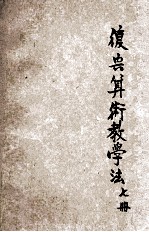 復興算術教學法七冊